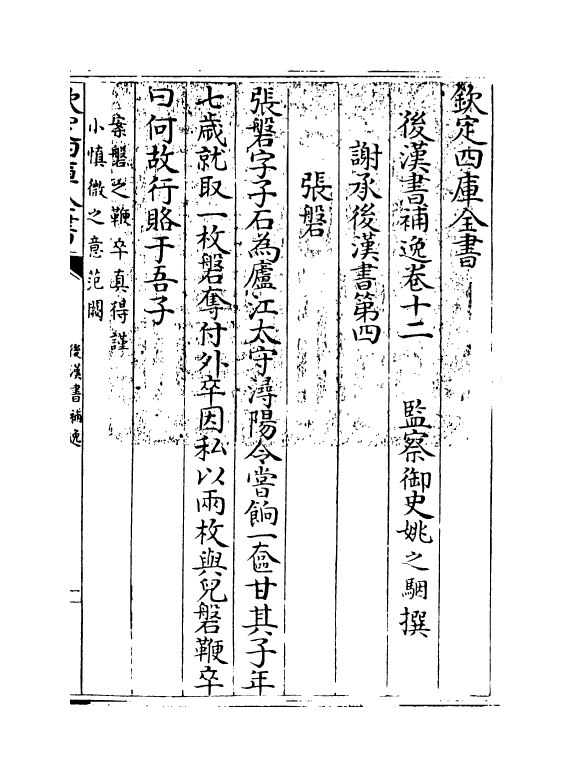 欽定四庫全書
後漢書補逸卷十二　監察御史姚之駰撰
謝承後漢書第四
張磐
張磐字子石為廬江太守潯陽令嘗餉一奩甘其子年
七歲就取一枚磐奪付外卒因私以兩枚與兒磐鞭卒
曰何故行賂于吾子
案磐之鞭卒真得謹
小慎微之意范闕
欽定四庫全書
後漢書補逸